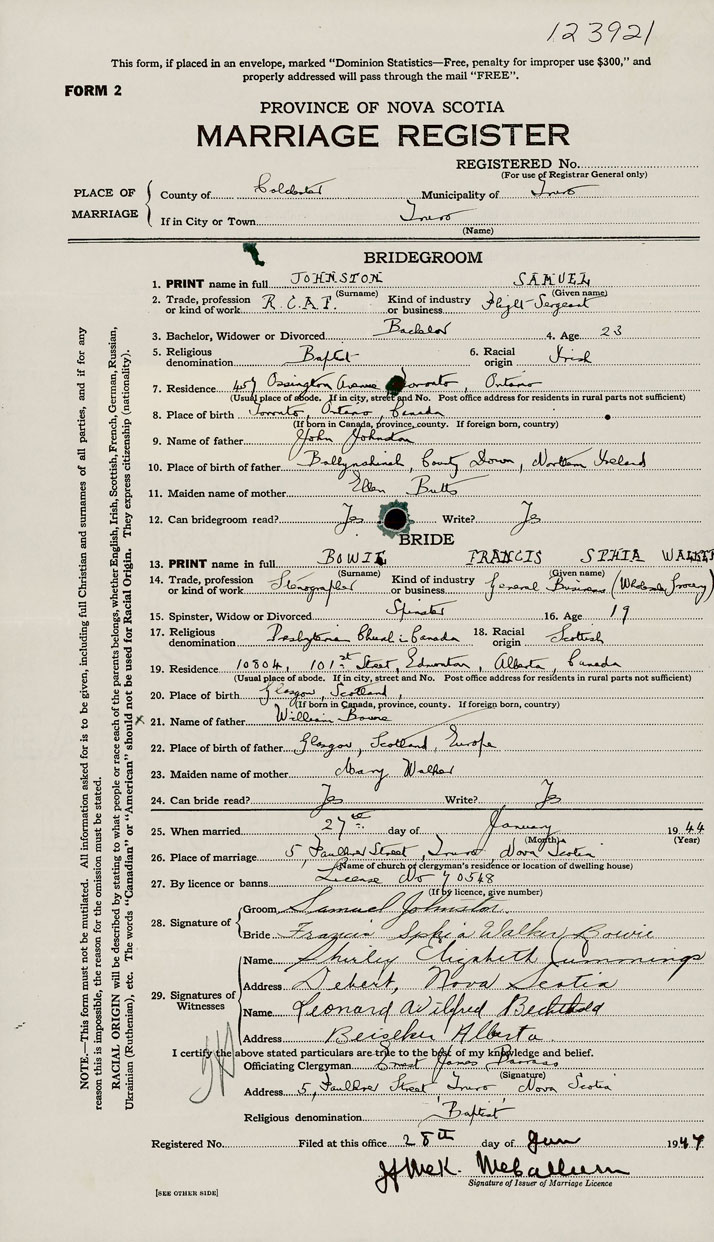 123921
This form, if placed in an envelope, marked "Dominion Statistics—Free, penalty for improper use $300," and
properly addressed will pass through the mail "FREE".
FORM 2
PROVINCE OF NOVA SCOTIA
MARRIAGE REGISTER
REGISTERED No.
(For use of Registrar General only)
PLACE OF MARRIAGE
County of Colchester Municipality of Truro
If in City or Town Truro
(Name)
BRIDEGROOM
1. PRINT name in full JOHNSTON SAMUEL
(Surname) (Given name)
2. Trade, profession or kind of work R.C.A.F. Kind of industry or business Flight-Sergeant
3. Bachelor, Widower or Divorced Bachelor 4. Age 23
5. Religious denomination Baptist 6. Racial origin Irish
7. Residence 457 Ossington Avenue Toronto, Ontario
(Usual place of abode. If in city, street and No. Post office address for residents in rural parts not sufficient)
8. Place of birth Toronto, Ontario, Canada
(If born in Canada, province, county. If foreign born, country)
9. Name of father John Johnston
10. Place of birth of father Ballynahinch, County Down, Northern Ireland
11. Maiden name of mother Ellen Butts
12. Can bridegroom read? Yes Write? Yes
BRIDE
13. PRINT name in full BOWIE FRANCIS SPHIA WALKER
(Surname) (Given name)
14. Trade, profession or kind of work Stenographer Kind of industry or business General Business (Wholesale Grocery)
15. Spinster, Widow or Divorced Spinster 16. Age 19
17. Religious denomination Presbyterian Church in Canada 18. Racial origin Scottish
19. Residence 10804, 101st Street, Edmonton, Alberta, Canada
(Usual place of abode. If in city, street and No. Post office address for residents in rural parts not sufficient)
20. Place of birth Glasgow, Scotland,
(If born in Canada, province, county. If foreign born, country)
x 21. Name of father William Bowie
22. Place of birth of father Glasgow, Scotland, Europe
23. Maiden name of mother Mary Walker
24. Can bride read? Yes Write? Yes
25. When married 27th day of January 1944
(Month) (Year)
26. Place of marriage 5, Faulkner Street, Truro, Nova Scotia
(Name of church or clergyman's residence or location of dwelling house)
27. By licence or banns License No 70548
(If by licence, give number)
28. Signature of
Groom Samuel Johnston
Bride Francis Sphia Walker Bowie
29. Signatures of Witnesses
Name Shirley Elizabeth Cummings
Address Debert, Nova Scotia
Name Leonard Wilfred Bechthold
Address Beiseker Alberta
I certify the above stated particulars are true to the best of my knowledge and belief.
Officiating Clergyman Ernest James Barrass
(Signature)
Address 5, Faulkner Street Truro Nova Scotia
Religious denomination 'Baptist'
Registered No. Filed at this office 28th day of Jan 1944
McCallum
Signature of Issuer of Marriage Licence
[SEE OTHER SIDE]
NOTE.—This form must not be mutilated. All information asked for is to be given, including full Christian and surnames of all parties, and if for any
reason this is impossible, the reason for the omission must be stated.
RACIAL ORIGIN will be described by stating to what people or race each of the parents belongs, whether English, Irish, Scottish, French, German, Russian,
Ukrainian (Ruthenian), etc. The words "Canadian" or "American" should not be used for Racial Origin. They express citizenship (nationality).